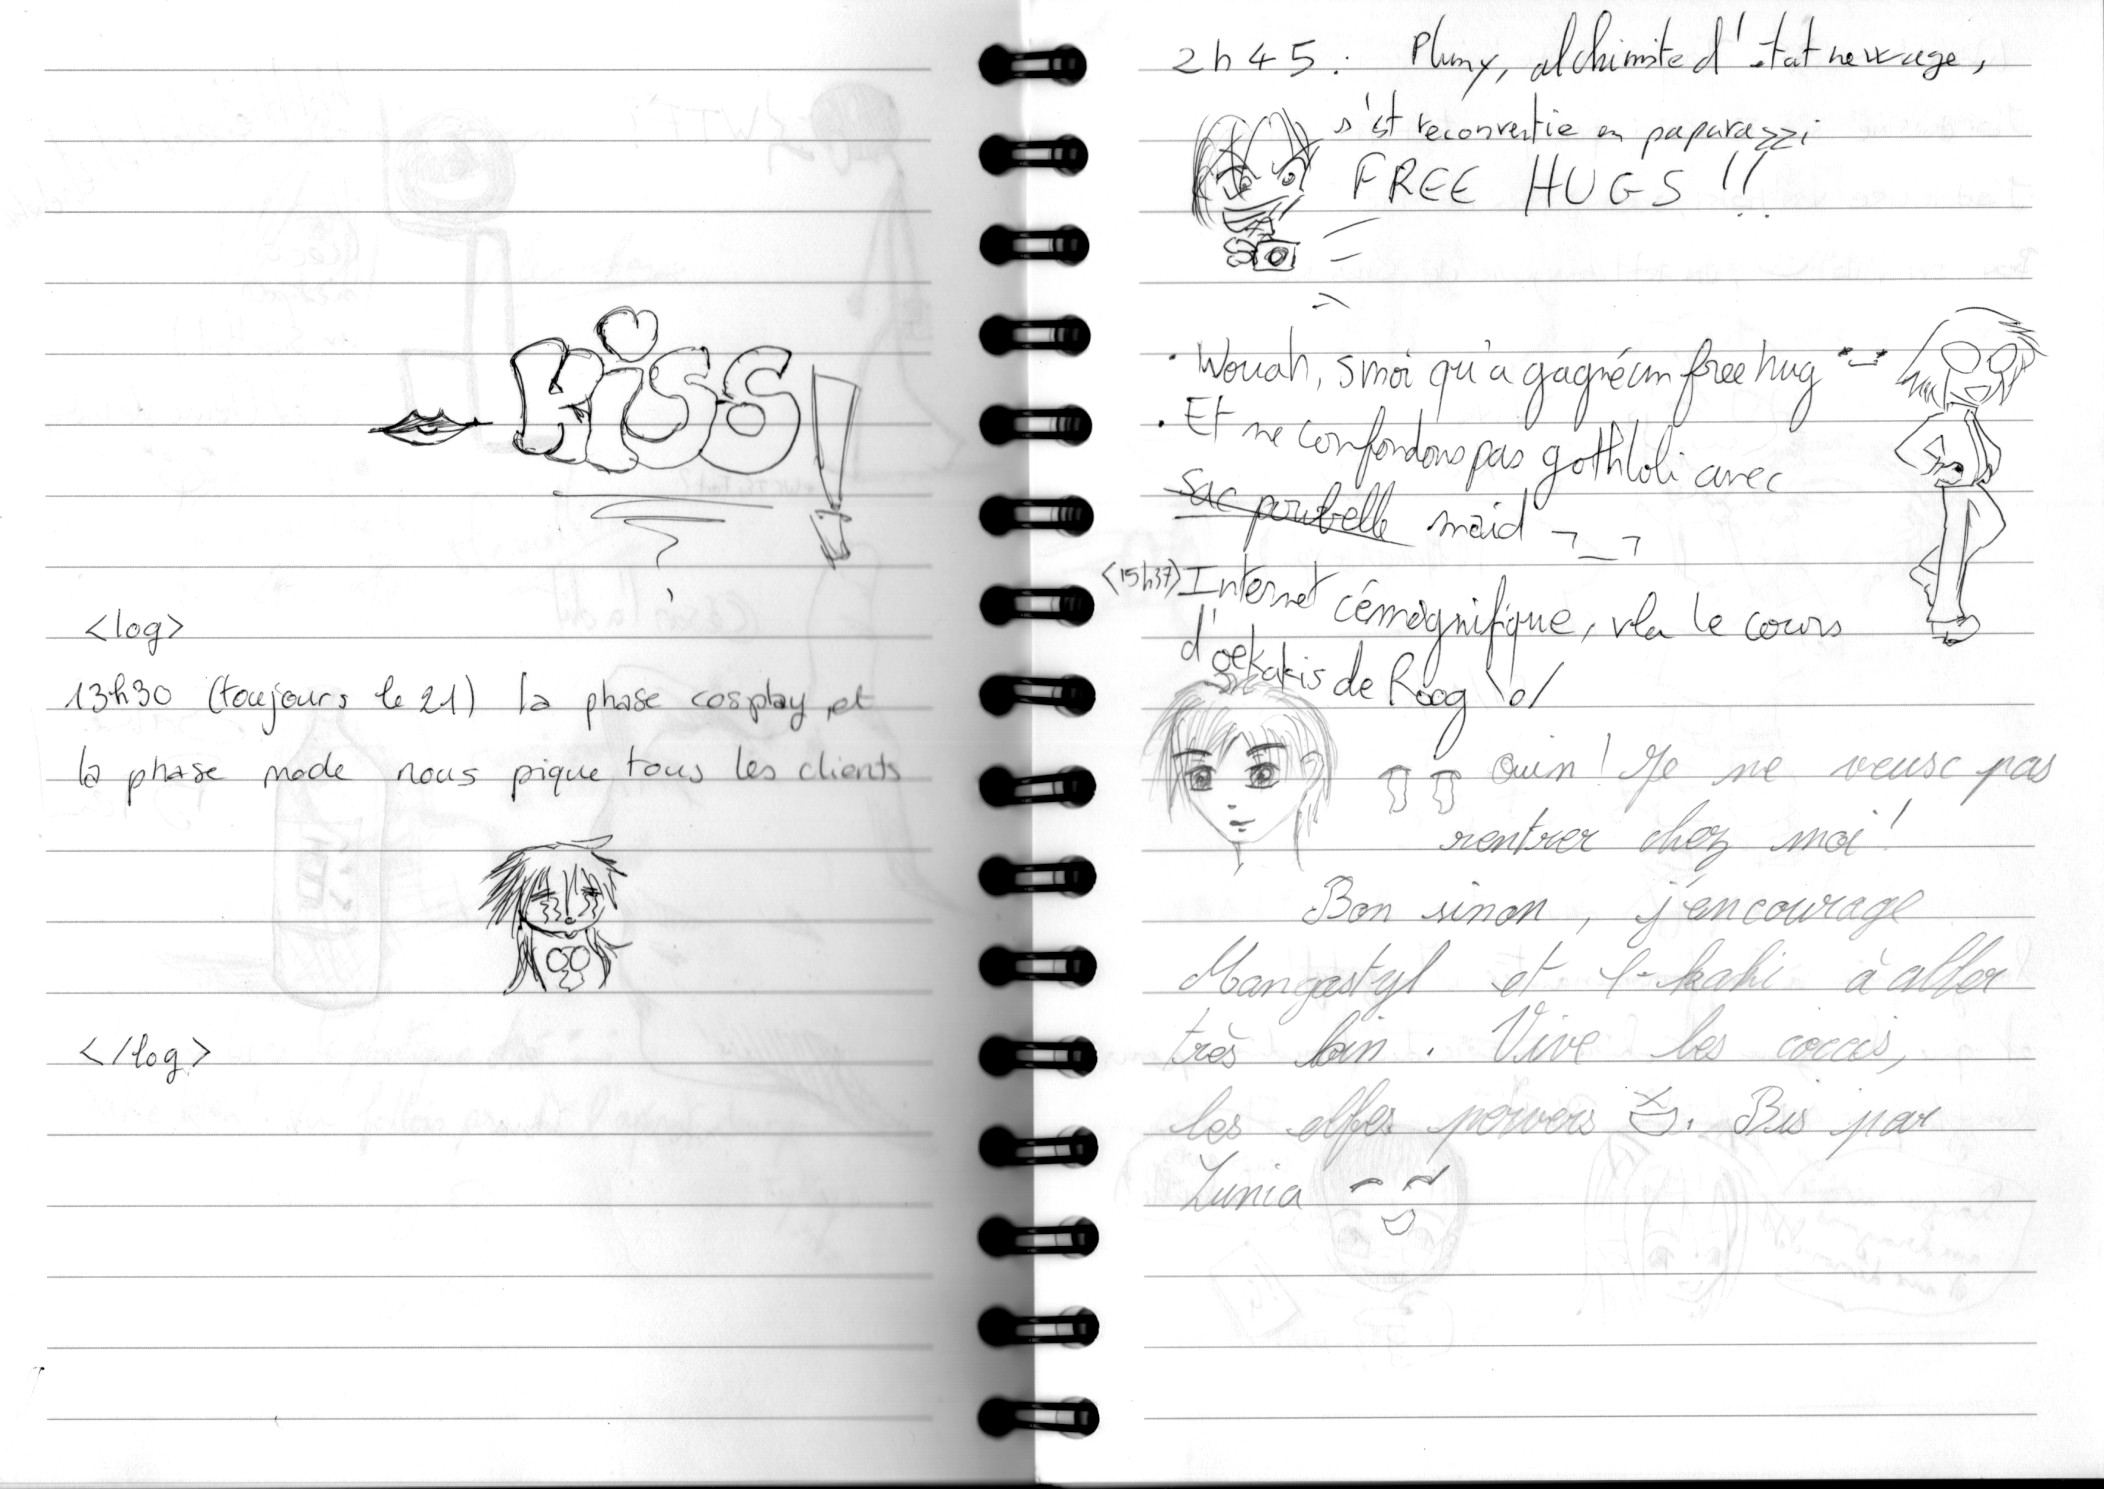 Kiss!
<log>
13h30 (toujours le 21) la phase cosplay et
la phase mode nous pique tous les clients
</log>
2h45 : Plumy, alchimiste d'état
s'est reconvertie en paparazzi
FREE HUGS !!
• Wouah, s moi qu'a gagné un free hug
• Et ne confondons pas gothloli avec
sac poubelle maid ¬_¬
<15h37> Internet cémagnifique, vla le cours
d'oekakis de Roog \o/
Ouin ! Je ne veux pas
rentrer chez moi !
Bon sinon, j'encourage
Mangastyl et à aller
très loin. Vive les coccis,
les elfes pervers XD. Bis par
Zunia